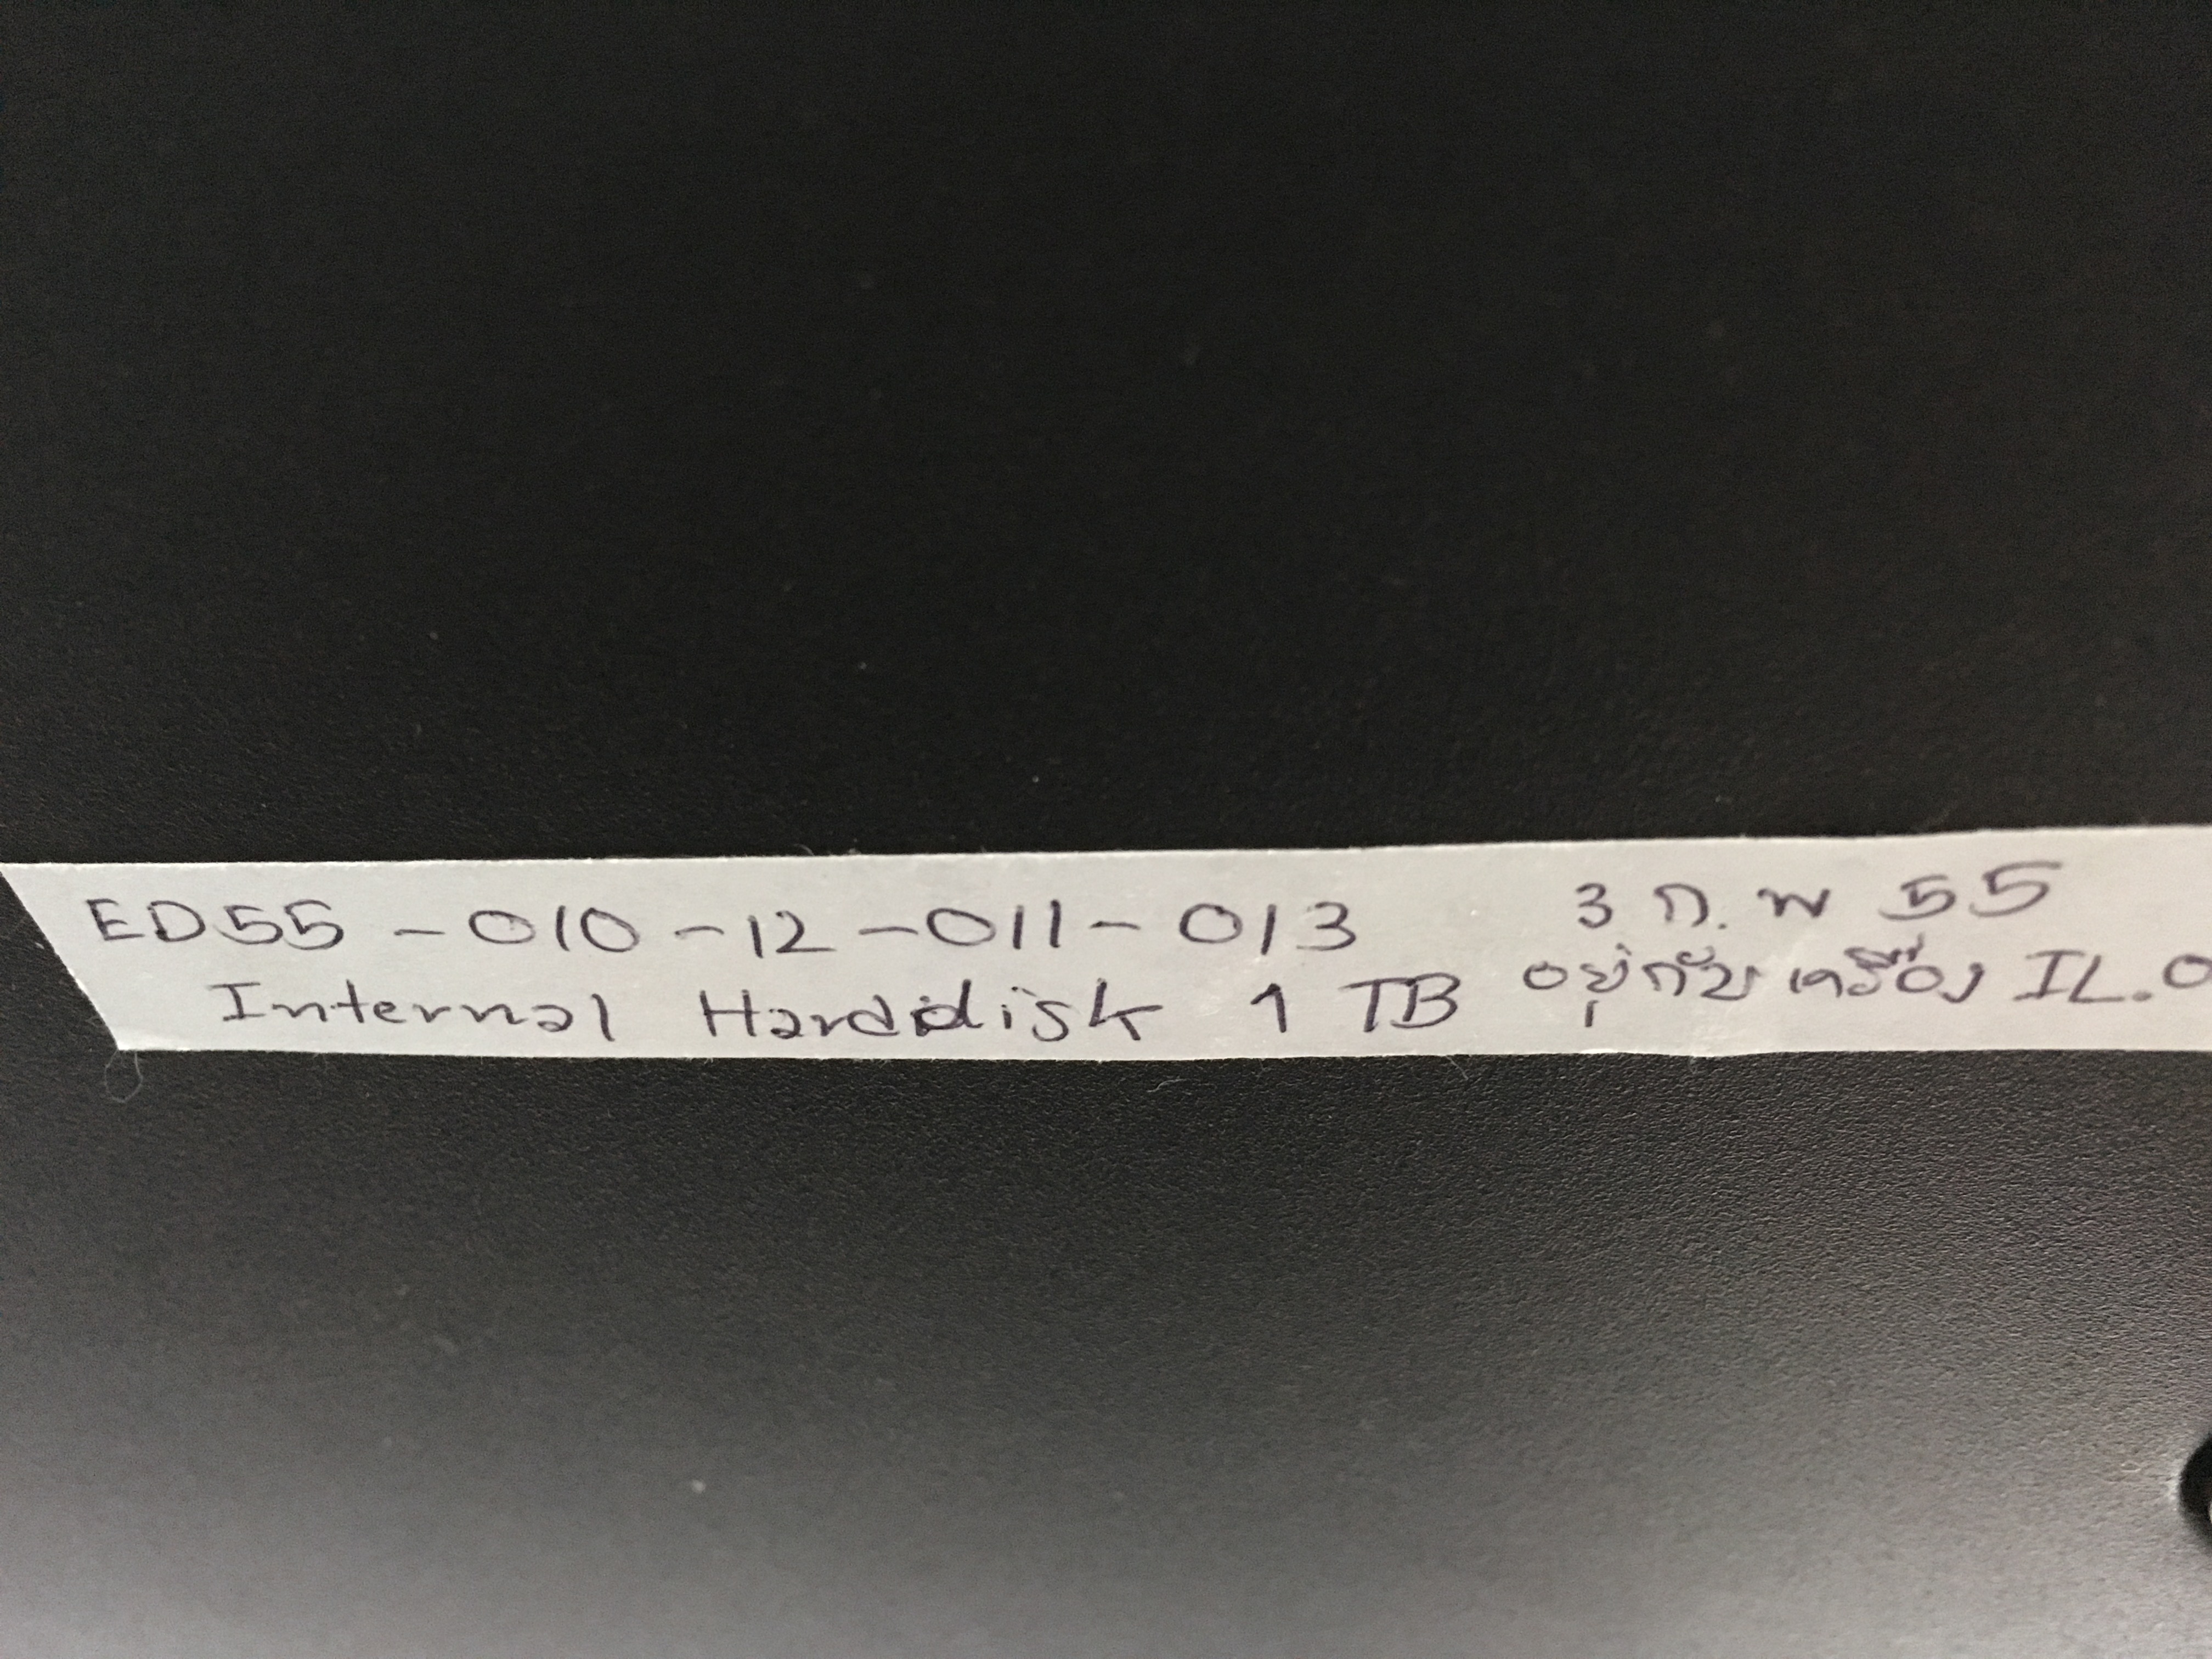 ED55 - 010 - 12 - 011 - 013 3 ก.พ 55
Internal Harddisk 1 TB อยู่กับเครื่อง IL.0